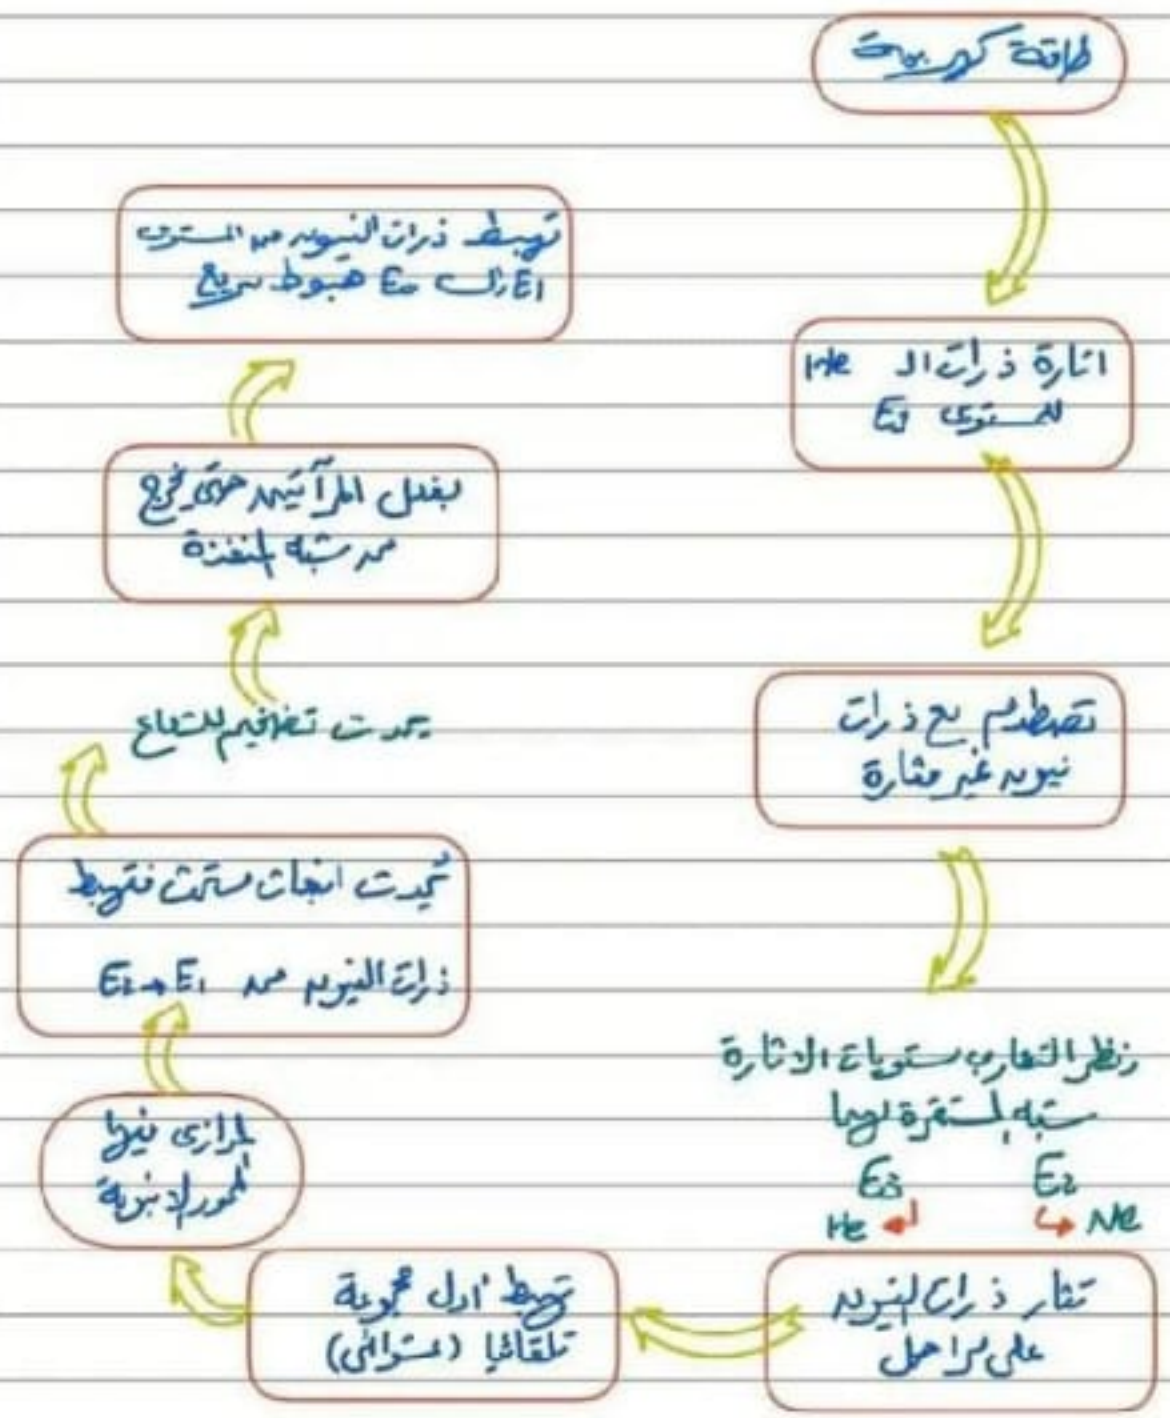 طاقة كهربية
اثارة ذرات الـ He
للمستوى E3
تصطدم مع ذرات
نيون غير مثارة
نظر التقارب مستويات الاثارة
شبه المستقرة لهما
E3 E2
He Ne
تثار ذرات النيون
على مراحل
تهبط اول مجموعة
تلقائيا (عشوائى)
الموازى فيها
لمحور الانبوبة
يحدث انبعاث مستحث فتهبط
ذرات النيون من E2→E1
يحدث تضخيم للشعاع
بفضل المرآتين حتى تخرج
من شبه المنفذة
تهبط ذرات النيون من المستوى
E1 الى E0 هبوط سريع